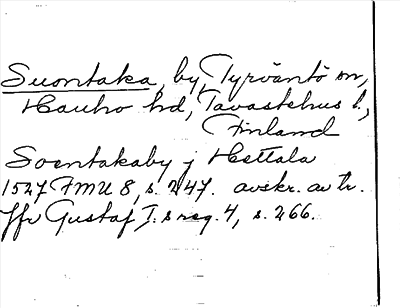 Suontaka, by, Tyrväntö sn,
Hauho hd, Tavastehus l.,
Finland
Soentakaby j Hettala
1527 FMU 8, s. 247. avskr. av tr.
Jfr Gustaf I:s reg. 4, s. 266.